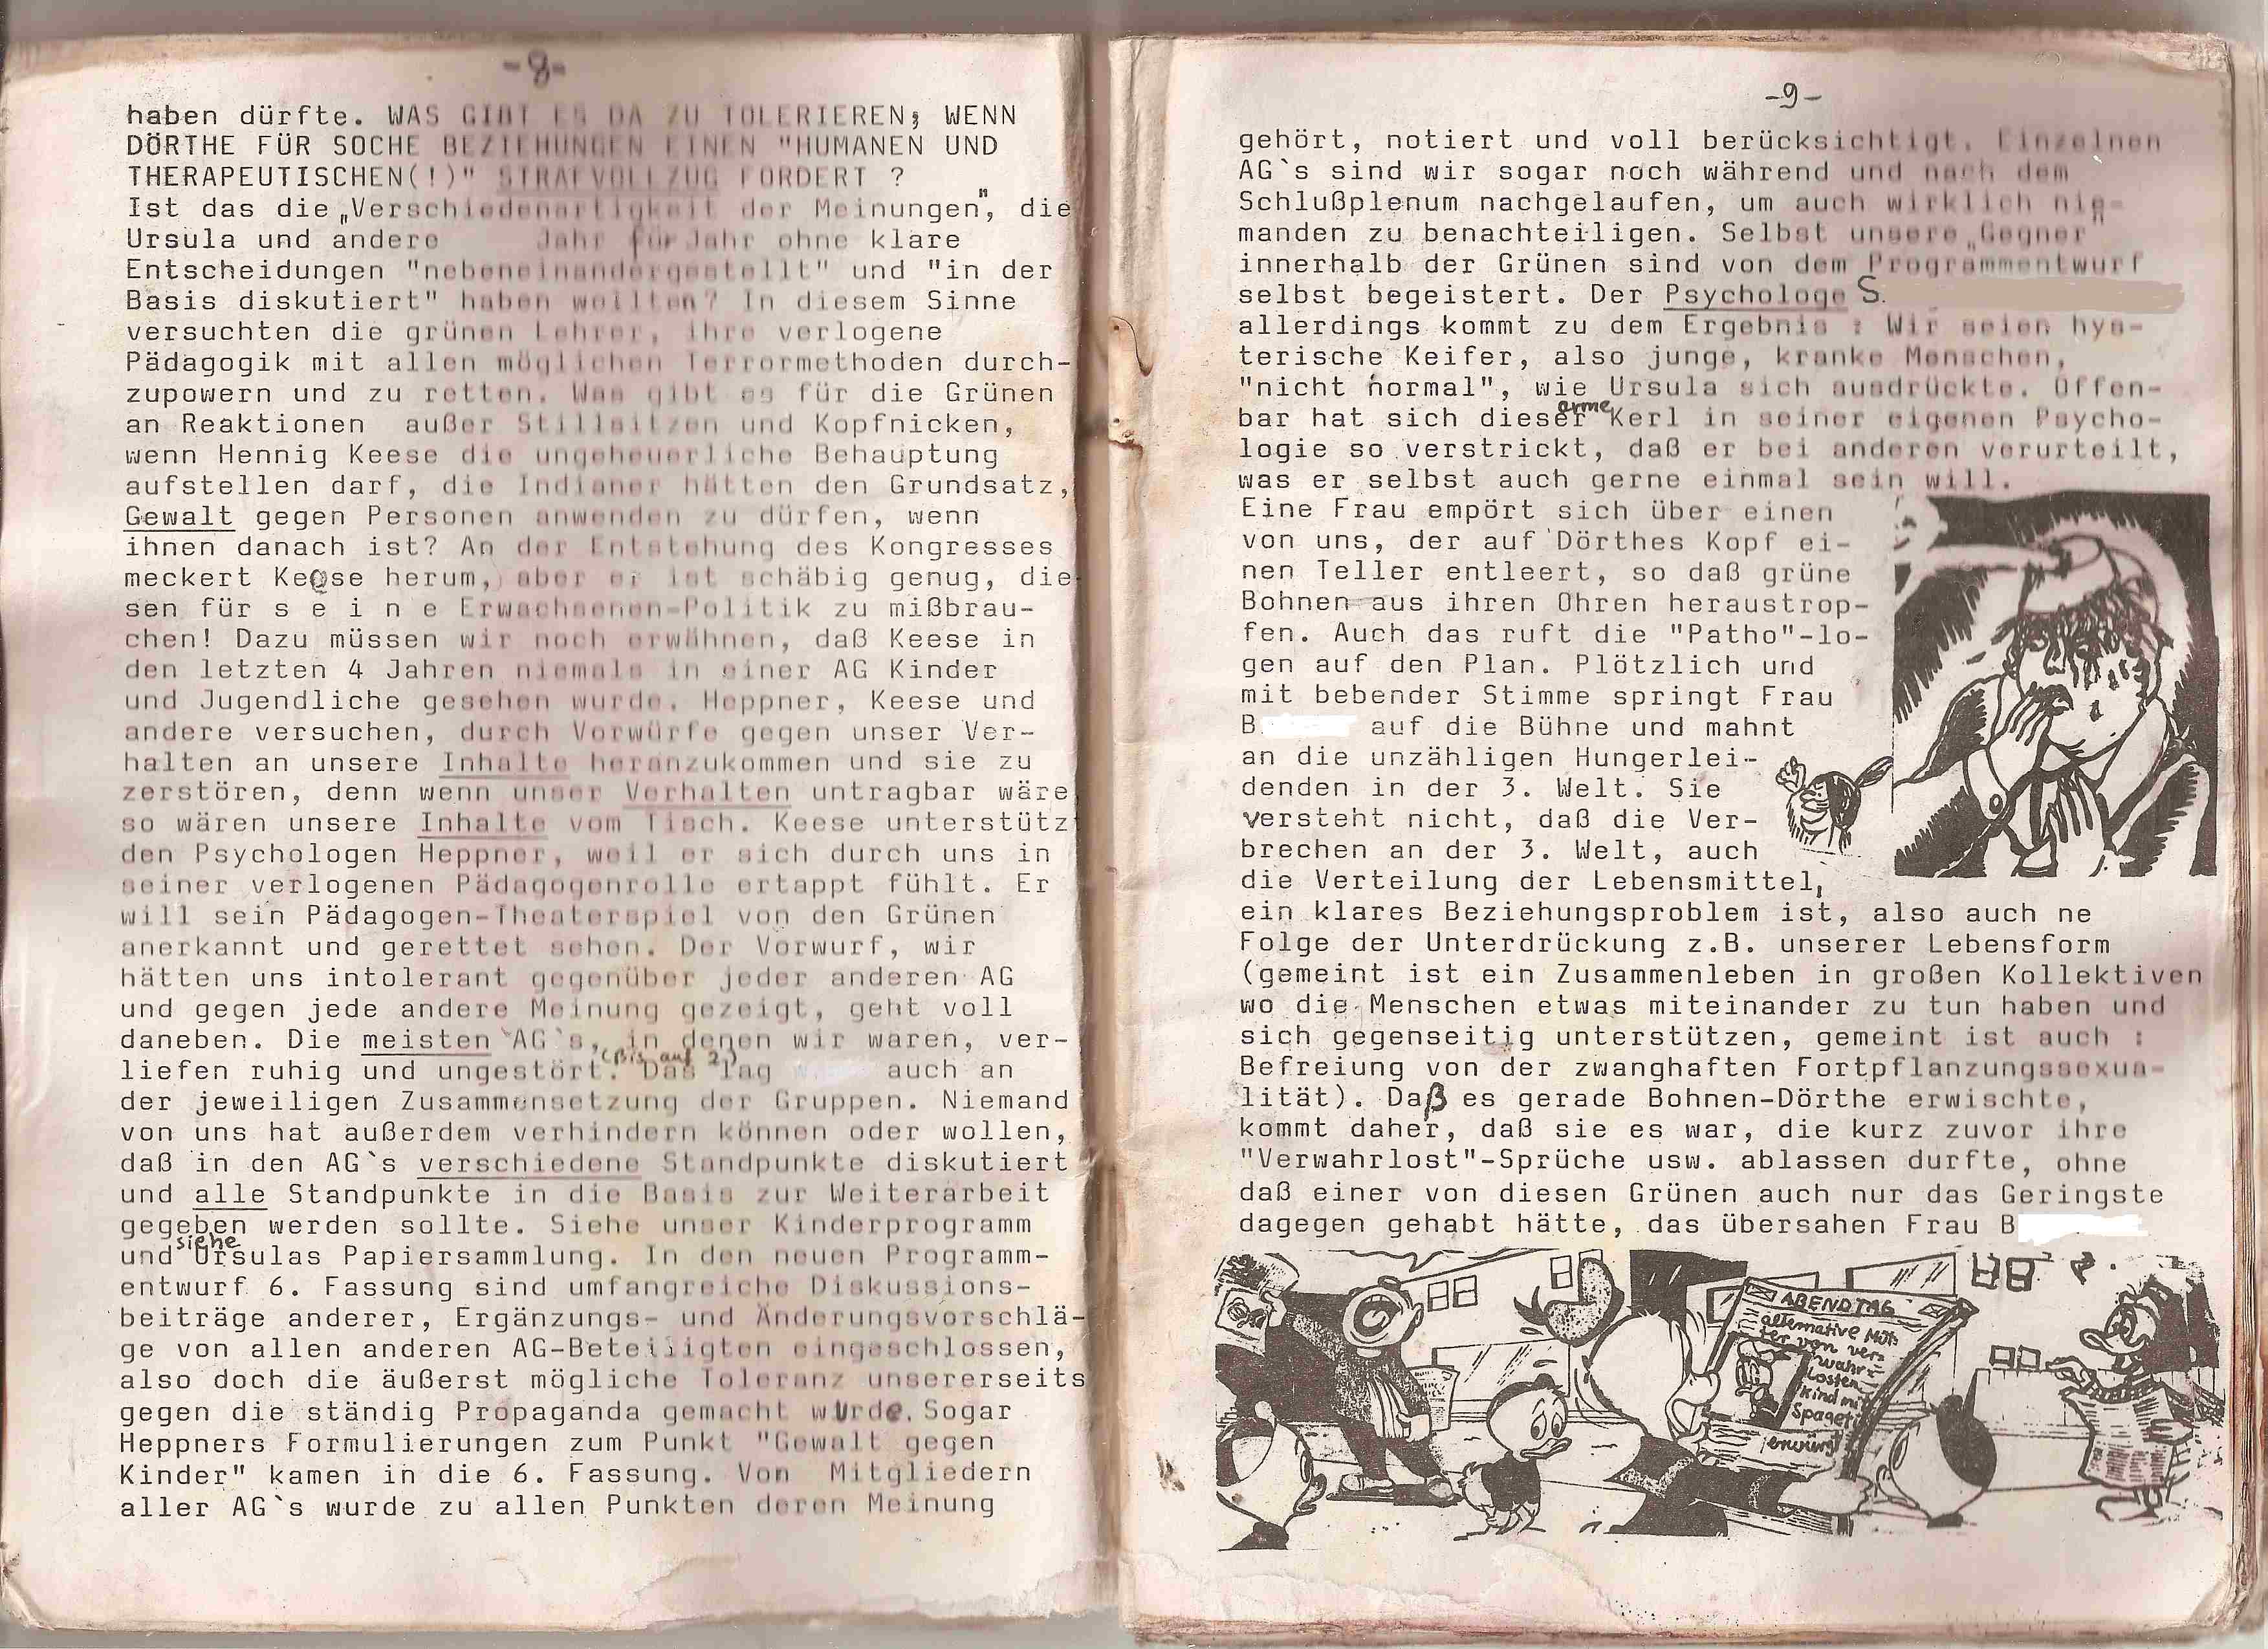 -8-
haben dürfte. WAS GIBT ES DA ZU TOLERIEREN; WENN
DÖRTHE FÜR SOCHE BEZIEHUNGEN EINEN "HUMANEN UND
THERAPEUTISCHEN(!)" STRAFVOLLZUG FORDERT ?
Ist das die „Verschiedenartigkeit der Meinungen", die
Ursula und andere Jahr für Jahr ohne klare
Entscheidungen "nebeneinandergestellt" und "in der
Basis diskutiert" haben wollten? In diesem Sinne
versuchten die grünen Lehrer, ihre verlogene
Pädagogik mit allen möglichen Terrormethoden durch-
zupowern und zu retten. Was gibt es für die Grünen
an Reaktionen außer Stillsitzen und Kopfnicken,
wenn Hennig Keese die ungeheuerliche Behauptung
aufstellen darf, die Indianer hätten den Grundsatz,
Gewalt gegen Personen anwenden zu dürfen, wenn
ihnen danach ist? An der Entstehung des Kongresses
meckert Keese herum, aber er ist schäbig genug, die
sen für s e i n e Erwachsenen-Politik zu mißbrau-
chen! Dazu müssen wir noch erwähnen, daß Keese in
den letzten 4 Jahren niemals in einer AG Kinder
und Jugendliche gesehen wurde. Heppner, Keese und
andere versuchen, durch Vorwürfe gegen unser Ver-
halten an unsere Inhalte heranzukommen und sie zu
zerstören, denn wenn unser Verhalten untragbar wäre
so wären unsere Inhalte vom Tisch. Keese unterstütz
den Psychologen Heppner, weil er sich durch uns in
seiner verlogenen Pädagogenrolle ertappt fühlt. Er
will sein Pädagogen-Theaterspiel von den Grünen
anerkannt und gerettet sehen. Der Vorwurf, wir
hätten uns intolerant gegenüber jeder anderen AG
und gegen jede andere Meinung gezeigt, geht voll
daneben. Die meisten AG`s, in denen wir waren, ver-
liefen ruhig und ungestört. (Bis auf 2) Das lag auch an
der jeweiligen Zusammensetzung der Gruppen. Niemand
von uns hat außerdem verhindern können oder wollen,
daß in den AG`s verschiedene Standpunkte diskutiert
und alle Standpunkte in die Basis zur Weiterarbeit
gegeben werden sollte. Siehe unser Kinderprogramm
und siehe Ursulas Papiersammlung. In den neuen Programm-
entwurf 6. Fassung sind umfangreiche Diskussions-
beiträge anderer, Ergänzungs- und Änderungsvorschlä-
ge von allen anderen AG-Beteiligten eingeschlossen,
also doch die äußerst mögliche Toleranz unsererseits
gegen die ständig Propaganda gemacht wurde. Sogar
Heppners Formulierungen zum Punkt "Gewalt gegen
Kinder" kamen in die 6. Fassung. Von Mitgliedern
aller AG`s wurde zu allen Punkten deren Meinung
-9-
gehört, notiert und voll berücksichtigt. Einzelnen
AG`s sind wir sogar noch während und nach dem
Schlußplenum nachgelaufen, um auch wirklich nie-
manden zu benachteiligen. Selbst unsere „Gegner"
innerhalb der Grünen sind von dem Programmentwurf
selbst begeistert. Der Psychologe S.
allerdings kommt zu dem Ergebnis : Wir seien hys-
terische Keifer, also junge, kranke Menschen,
"nicht normal", wie Ursula sich ausdrückte. Offen-
bar hat sich dieser arme Kerl in seiner eigenen Psycho-
logie so verstrickt, daß er bei anderen verurteilt,
was er selbst auch gerne einmal sein will.
Eine Frau empört sich über einen
von uns, der auf Dörthes Kopf ei-
nen Teller entleert, so daß grüne
Bohnen aus ihren Ohren heraustrop-
fen. Auch das ruft die "Patho"-lo-
gen auf den Plan. Plötzlich und
mit bebender Stimme springt Frau
B. auf die Bühne und mahnt
an die unzähligen Hungerlei-
denden in der 3. Welt. Sie
versteht nicht, daß die Ver-
brechen an der 3. Welt, auch
die Verteilung der Lebensmittel,
ein klares Beziehungsproblem ist, also auch ne
Folge der Unterdrückung z.B. unserer Lebensform
(gemeint ist ein Zusammenleben in großen Kollektiven
wo die Menschen etwas miteinander zu tun haben und
sich gegenseitig unterstützen, gemeint ist auch :
Befreiung von der zwanghaften Fortpflanzungssexua-
lität). Daß es gerade Bohnen-Dörthe erwischte,
kommt daher, daß sie es war, die kurz zuvor ihre
"Verwahrlost"-Sprüche usw. ablassen durfte, ohne
daß einer von diesen Grünen auch nur das Geringste
dagegen gehabt hätte, das übersahen Frau B
ABENDTAG
alternative Mut-
ter von ver-
wahr-
losten
Kind mit
Spageti
erwürgt